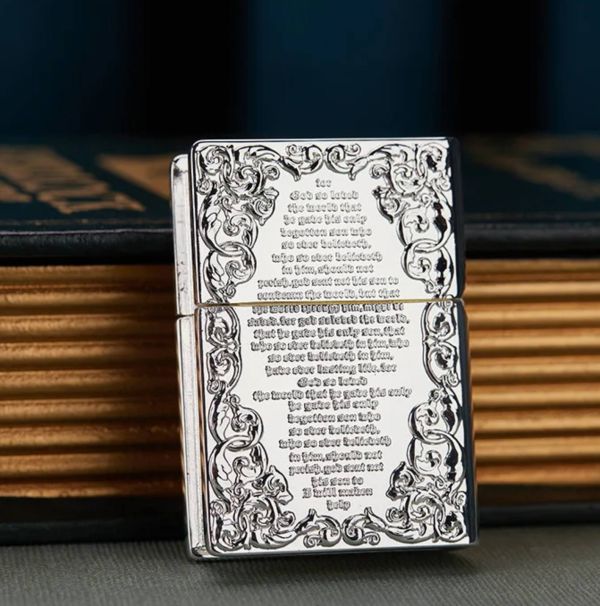 for
God so loved
the world that
he gave his only
begotten son who
so ever believeth,
who so ever believeth
in him,should not
perish.god sent not his son to
condemn the world,but that
the world through him,might be
saved.for god so loved the world,
that he gave his only son,that
who so ever believeth in him,who
so ever believeth in him,
have ever lasting life.for
God so loved
the world that he gave his only
he gave his only
begotten son who
so ever believeth,
who so ever believeth
in him,should not
perish.god sent not
his son to
I will maken
help